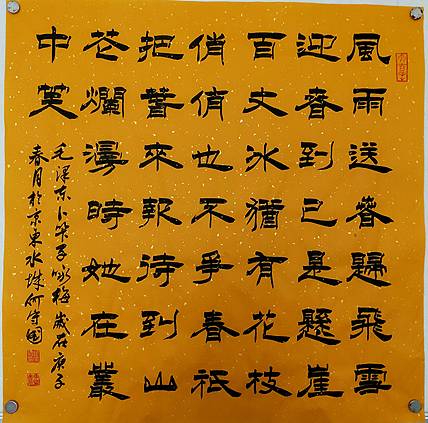 風雨送春歸飛雪
迎春到已是懸崖
百丈冰猶有花枝
俏俏也不爭春祇
把春來報待到山
花爛漫時她在叢
中笑
毛澤东卜算子咏梅歲在庚子
春月於京東水城